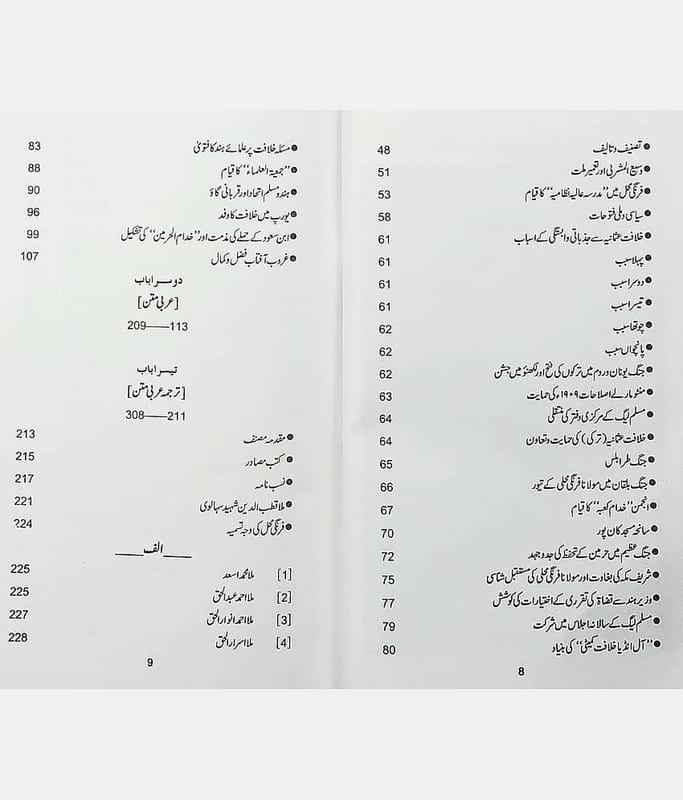 ● تصنیف و تالیف 48
● وسیع المشربی اور تعمیر ملت 51
● فرنگی محل میں ”مدرسہ عالیہ نظامیہ“ کا قیام 53
● سیاسی و ملی فتوحات 58
● خلافت عثمانیہ سے جذباتی وابستگی کے اسباب 61
● پہلا سبب 61
● دوسرا سبب 61
● تیسرا سبب 61
● چوتھا سبب 62
● پانچواں سبب 62
● جنگ یونان و روم میں ترکوں کی فتح اور لکھنؤ میں جشن 62
● منٹو مارلے اصلاحات ۱۹۰۹ء کی حمایت 63
● مسلم لیگ کے مرکزی دفتر کی منتقلی 64
● خلافت عثمانیہ (ترکی) کی حمایت و تعاون 64
● جنگ طرابلس 65
● جنگ بلقان میں مولانا فرنگی محلی کے تیور 66
● انجمن ”خدام کعبہ“ کا قیام 67
● سانحہ مسجد کان پور 70
● جنگ عظیم میں حرمین کے تحفظ کی جدوجہد 72
● شریف مکہ کی بغاوت اور مولانا فرنگی محلی کی مستقبل شناسی 75
● وزیر ہند سے قضاۃ کی تقرری کے اختیارات کی کوشش 77
● مسلم لیگ کے سالانہ اجلاس میں شرکت 79
● ”آل انڈیا خلافت کمیٹی“ کی بنیاد 80
8
● مسئلہ خلافت پر علمائے ہند کا فتویٰ 83
● ”جمعیۃ العلماء“ کا قیام 88
● ہندو مسلم اتحاد اور قربانی گاؤ 90
● یورپ میں خلافت کا وفد 96
● ابن سعود کے حملے کی مذمت اور ”خدام الحرمین“ کی تشکیل 99
● غروب آفتاب فضل و کمال 107
دوسرا باب
[عربی متن]
113——209
تیسرا باب
[ترجمہ عربی متن]
211——308
● مقدمہ مصنف 213
● کتب مصادر 215
● نسب نامہ 217
● ملا قطب الدین شہید سہالوی 221
● فرنگی محل کی وجہ تسمیہ 224
___الف___
[1] ملا محمد اسعد 225
[2] ملا احمد عبدالحق 225
[3] ملا احمد انوارالحق 227
[4] ملا اسرارالحق 228
9